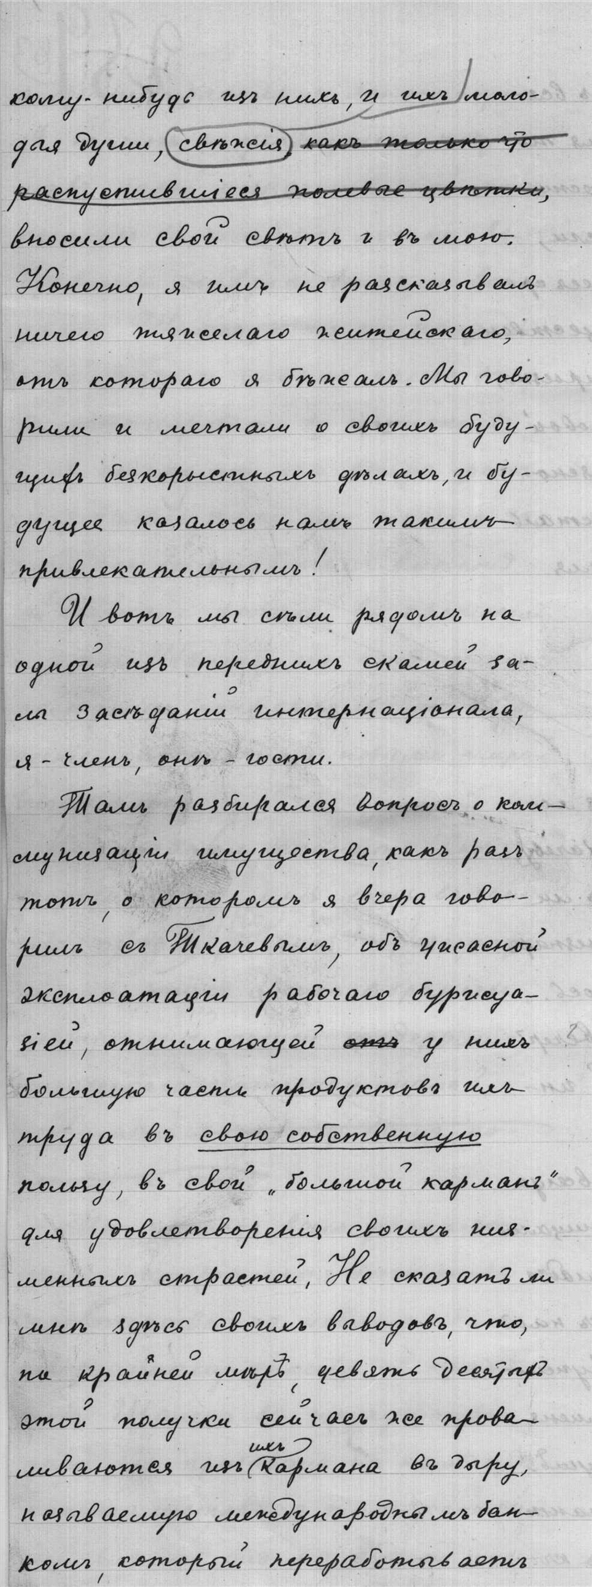 кому-нибудь изъ нихъ, и ихъ моло-
дыя души, свѣжія, какъ только что
распустившіеся полевые цвѣтки,
вносили свой свѣтъ и въ мою.
Конечно, я имъ не разсказывалъ
ничего тяжелаго житейскаго,
отъ котораго я бѣжалъ. Мы гово-
рили и мечтали о своихъ буду-
щихъ безкорыстныхъ дѣлахъ, и бу-
дущее казалось намъ такимъ
привлекательнымъ!
И вотъ мы сѣли рядомъ на
одной изъ переднихъ скамей за-
лы засѣданій интернаціонала,
я - членъ, онѣ - гости.
Тамъ разбирался вопросъ о ком-
мунизаціи имущества, какъ разъ
тотъ, о которомъ я вчера гово-
рилъ съ Ткачевымъ, объ ужасной
эксплоатаціи рабочаго буржуа-
зіей, отнимающей отъ у нихъ
большую часть продуктовъ ихъ
труда въ свою собственную
пользу, въ свой „большой карманъ“
для удовлетворенія своихъ низ-
менныхъ страстей. Не сказать ли
мнѣ здѣсь своихъ выводовъ, что,
по крайней мѣрѣ, девять десятыхъ
этой получки сейчасъ же прова-
ливаются изъ ихъ кармана въ дыру,
называемую международнымъ бан-
комъ, который переработываетъ